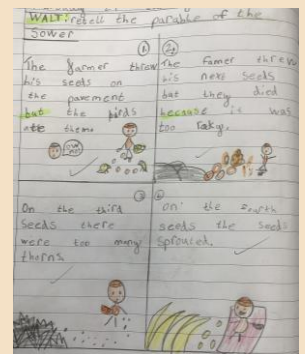 WALT: retell the parable of the
Sower
①
The farmer threw
his seeds on
the pavement
but the birds
ate them.
2
The Famer threw
his next seeds
but they died
because it was
too rocky.
③
On the third
seeds there
were too many
thorns.
④
on the fourth
seeds the seeds
sprouted.